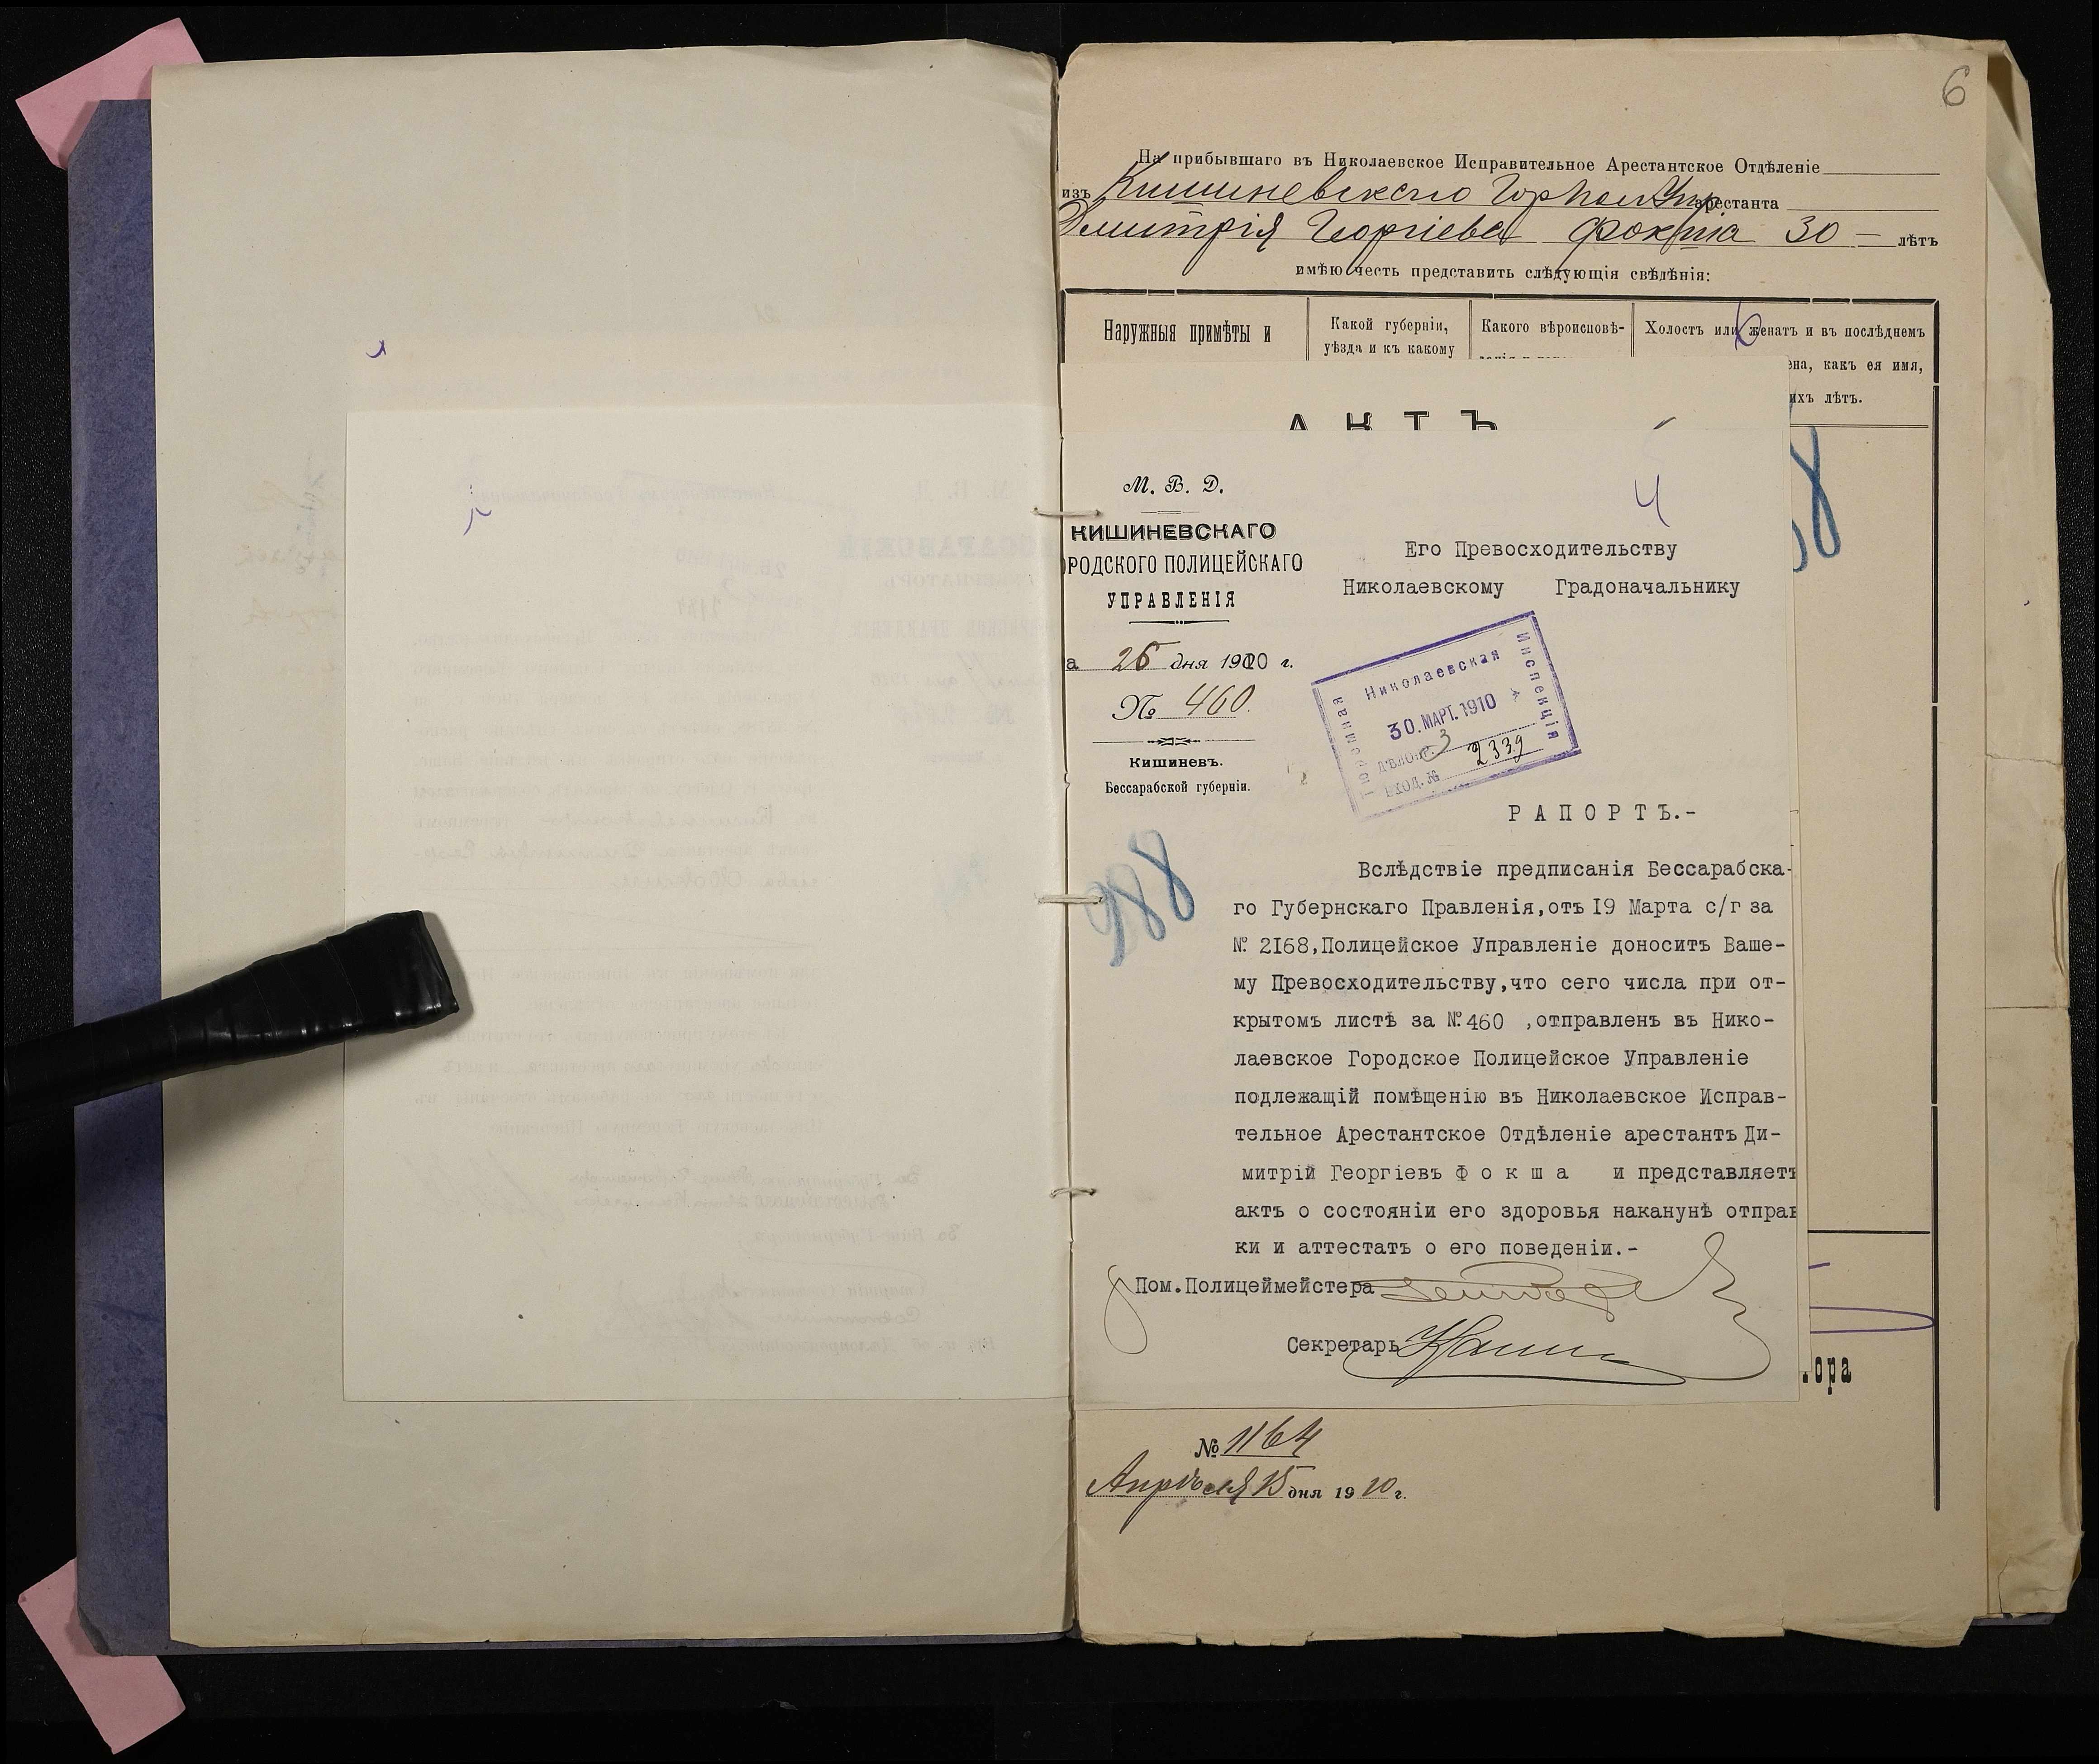 6
На прибывшаго въ Николаевское Исправительное Арестантское Отдѣленіе
изъ Кишиневскаго Гор Пол Упр арестанта
Дмитрія Георгіева Фокша 30 — лѣтъ
имѣю честь представить слѣдующія свѣдѣнія:
Наружныя примѣты и
Какой губерніи,
уѣзда и къ какому
Какого вѣроисповѣ-
Холостъ или женатъ и въ послѣднемъ
ена, какъ ея имя,
ихъ лѣтъ.
6
АКТЪ
4
М. В. Д.
КИШИНЕВСКАГО
РОДСКОГО ПОЛИЦЕЙСКАГО
УПРАВЛЕНІЯ
а 26 дня 1910 г.
№ 460.
Кишиневъ.
Бессарабской губерніи.
Его Превосходительству
Николаевскому Градоначальнику
Николаевская
Тюремная
Инспекція
30. МАРТ. 1910
ДѢЛОПР. 3
ВХОД. № 2339
988
РАПОРТЪ.-
Вслѣдствіе предписанія Бессарабска-
го Губернскаго Правленія,отъ I9 Марта с/г за
№ 2I68,Полицейское Управленіе доноситъ Ваше-
му Превосходительству,что сего числа при от-
крытомъ листѣ за № 460 ,отправленъ въ Нико-
лаевское Городское Полицейское Управленіе
подлежащій помѣщенію въ Николаевское Исправ-
тельное Арестантское Отдѣленіе арестантъ Ди-
митрій Георгіевъ Фокша и представляетъ
актъ о состояніи его здоровья наканунѣ отправ
ки и аттестатъ о его поведеніи.-
Пом.Полицеймейстера
Секретарь
тора
№ 1164
Апрѣля 15 дня 1910 г.